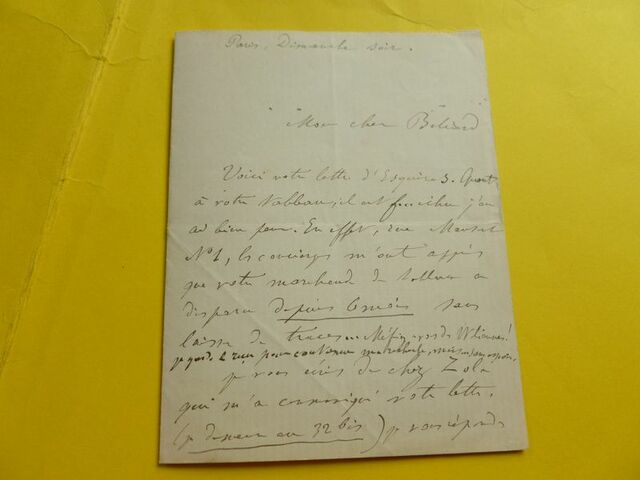 Paris, Dimanche soir.
Mon cher Béliard
Voici votre lettre d'Esquiros. Quant
à votre tableau, il est fichu j'en
ai bien peur. En effet, rue Mansart
No 1, les concierges m'ont appris
que votre marchand de tableaux a
disparu depuis 6 mois sans
laisser de traces. Méfiez-vous de
je garde le reçu pour continuer mes recherches, mais
je vous écris de chez Zola
qui m'a communiqué votre lettre.
(je demeure au 32 bis) je vous réponds